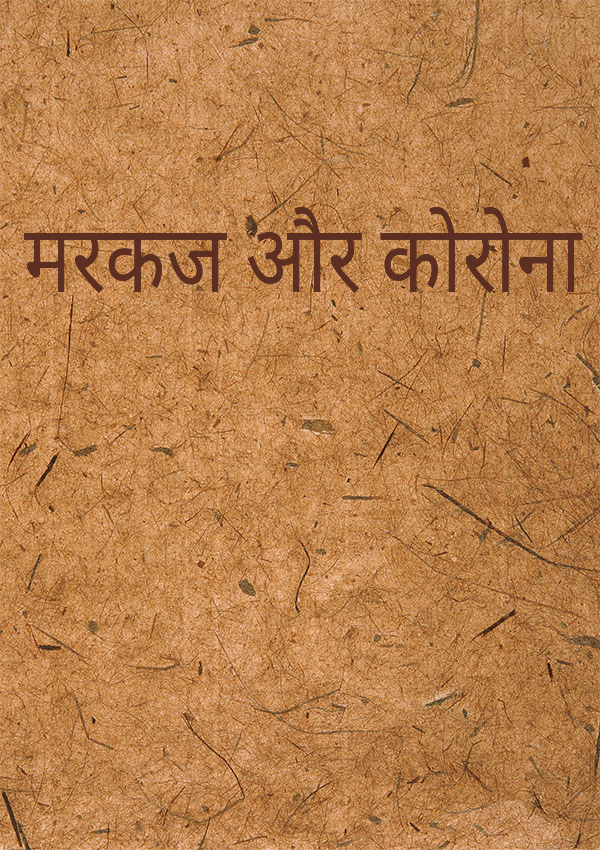 मरकज और कोरोना